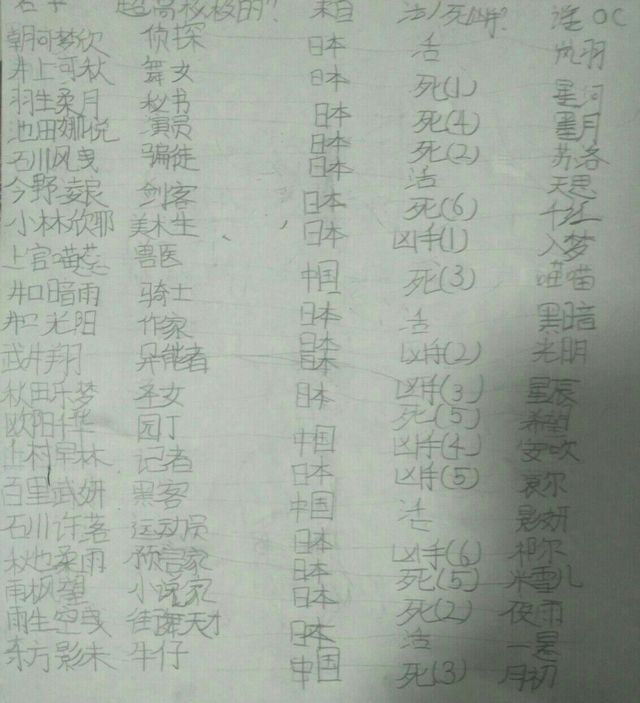 名字 超高校级的? 来自 活/死/凶手? 谁OC
朝河梦欣 侦探 日本 活 风羽
井上可秋 舞女 日本 死(1) 星河
羽生柔月 秘书 日本 死(4) 墨月
池田娜悦 演员 日本 死(2) 苏洛
石川风曳 骗徒 日本 活 天思
今野凌辰 剑客 日本 死(6) 千红
小林欣耶 美术生 日本 凶手(1) 入梦
上官喵蕊 兽医 中国 死(3) 喵喵
井口暗雨 骑士 日本 活 黑暗
井口光阳 作家 日本 凶手(2) 光明
武井翔 异能者 日本 凶手(3) 星辰
秋田乐梦 圣女 日本 死(5) 希望
欧阳千华 园丁 中国 凶手(4) 安吹
上村早林 记者 日本 凶手(5) 哀尔
百里武妍 黑客 中国 活 影妍
石川许落 运动员 日本 凶手(6) 祁尔
秋也柔雨 预言家 日本 死(5) 米雪儿
南枫望 小说家 日本 死(2) 夜雨
雨生空曳 街舞天才 日本 活 一是
东方影未 牛仔 中国 死(3) 月初